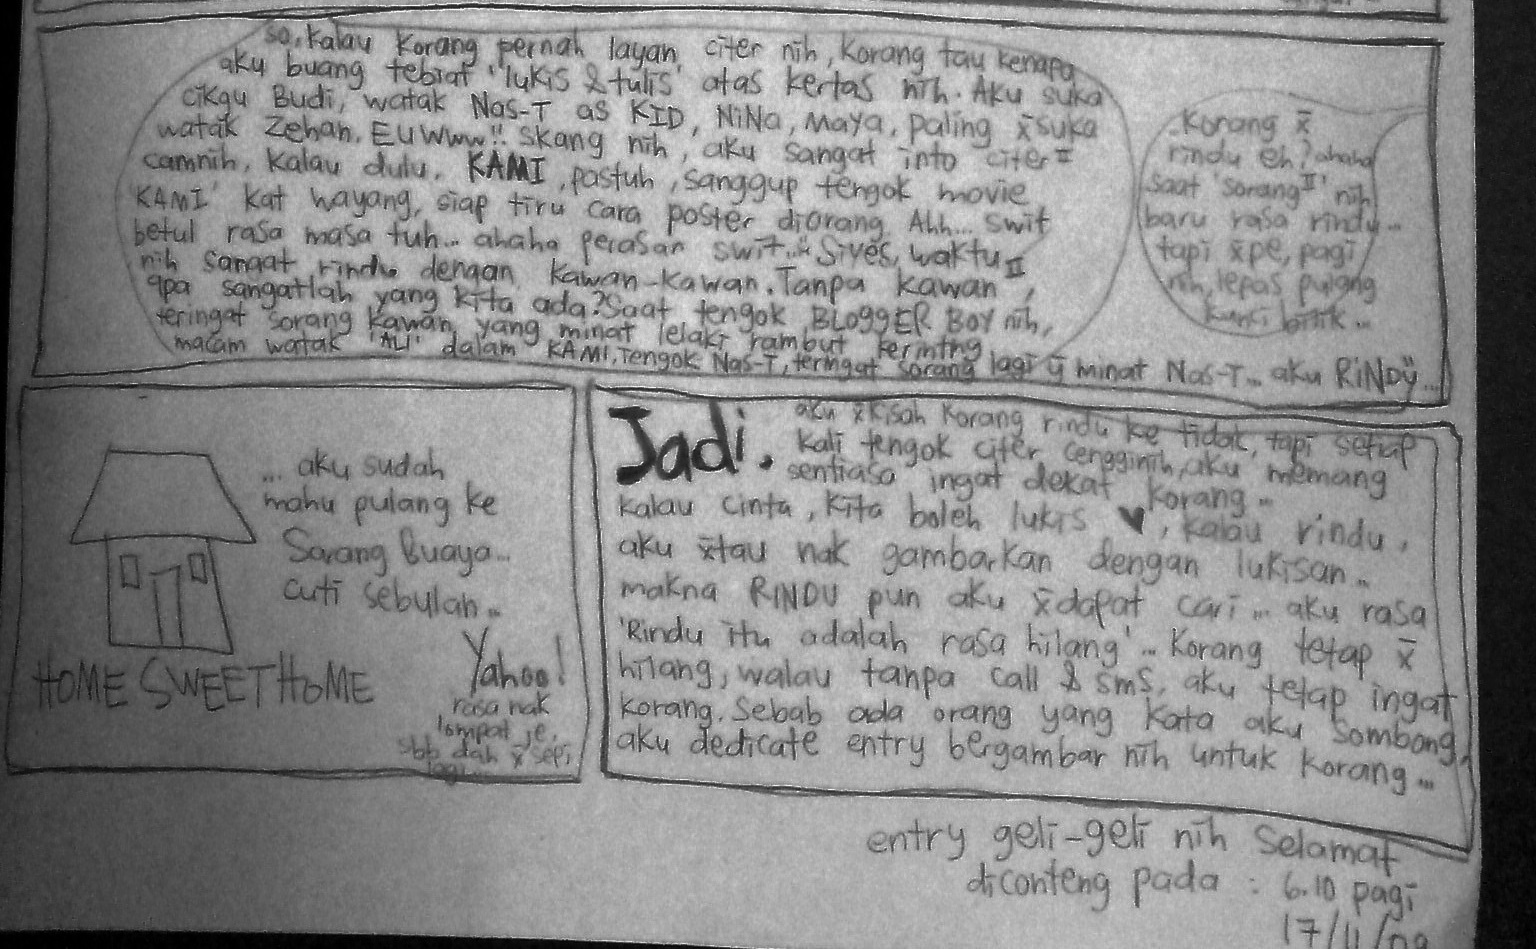 so, kalau korang pernah layan citer nih, korang tau kenapa
aku buang tebiat 'lukis & tulis' atas kertas nih. Aku suka
cikgu Budi, watak Nas-T as KID, NiNa, Maya, paling x̄suka
watak Zehan. EUWww!! Skang nih, aku sangat into citerII
camnih. Kalau dulu, KAMI, pastuh, sanggup tengok movie
KAMI' kat wayang, siap tiru cara poster diorang. Ahh... swit
betul rasa masa tuh... ahaha perasan swit... Siyes, waktuII
nih sangat rindu dengan kawan-kawan. Tanpa kawan,
apa sangatlah yang kita ada? Saat tengok BLOGGER BOY nih,
teringat sorang kawan yang minat lelaki rambut kerinting
macam watak 'ALI' dalam KAMI. Tengok Nas-T, teringat sorang lagi ȳ minat Nas-T... aku RiNDŮ...
Korang x̄
rindu eh? ahaha
Saat 'sorangII' nih
baru rasa rindu...
tapi x̄pe, pagi
nih, lepas pulang
kunci bilik...
... aku sudah
mahu pulang ke
Sarang Buaya...
cuti sebulan...
HOME SWEET HOME
Yahoo!
rasa nak
lompat je,
sbb dah x̄ sepi
lagi...
Jadi. aku x̄kisah korang rindu ke tidak, tapi setiap
kali tengok citer cengginih, aku memang
sentiasa ingat dekat korang...
kalau cinta, kita boleh lukis ♥, kalau rindu,
aku x̄tau nak gambarkan dengan lukisan...
makna RINDU pun aku x̄dapat cari... aku rasa
'Rindu itu adalah rasa hilang'... Korang tetap x̄
hilang, walau tanpa call & sms, aku tetap ingat
korang. Sebab ada orang yang kata aku sombong,
aku dedicate entry bergambar nih untuk korang...
entry geli-geli nih Selamat
diconteng pada : 6.10 pagi
17/11/09